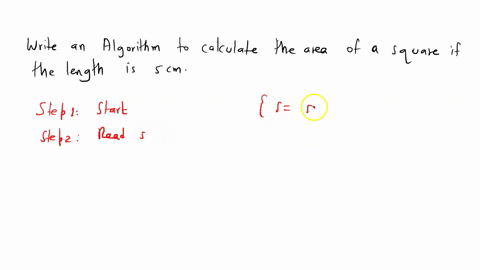 Write an Algorithm to calculate the area of a square if
the length is 5cm.
Step1: Start
Step2: Read s
{ s=